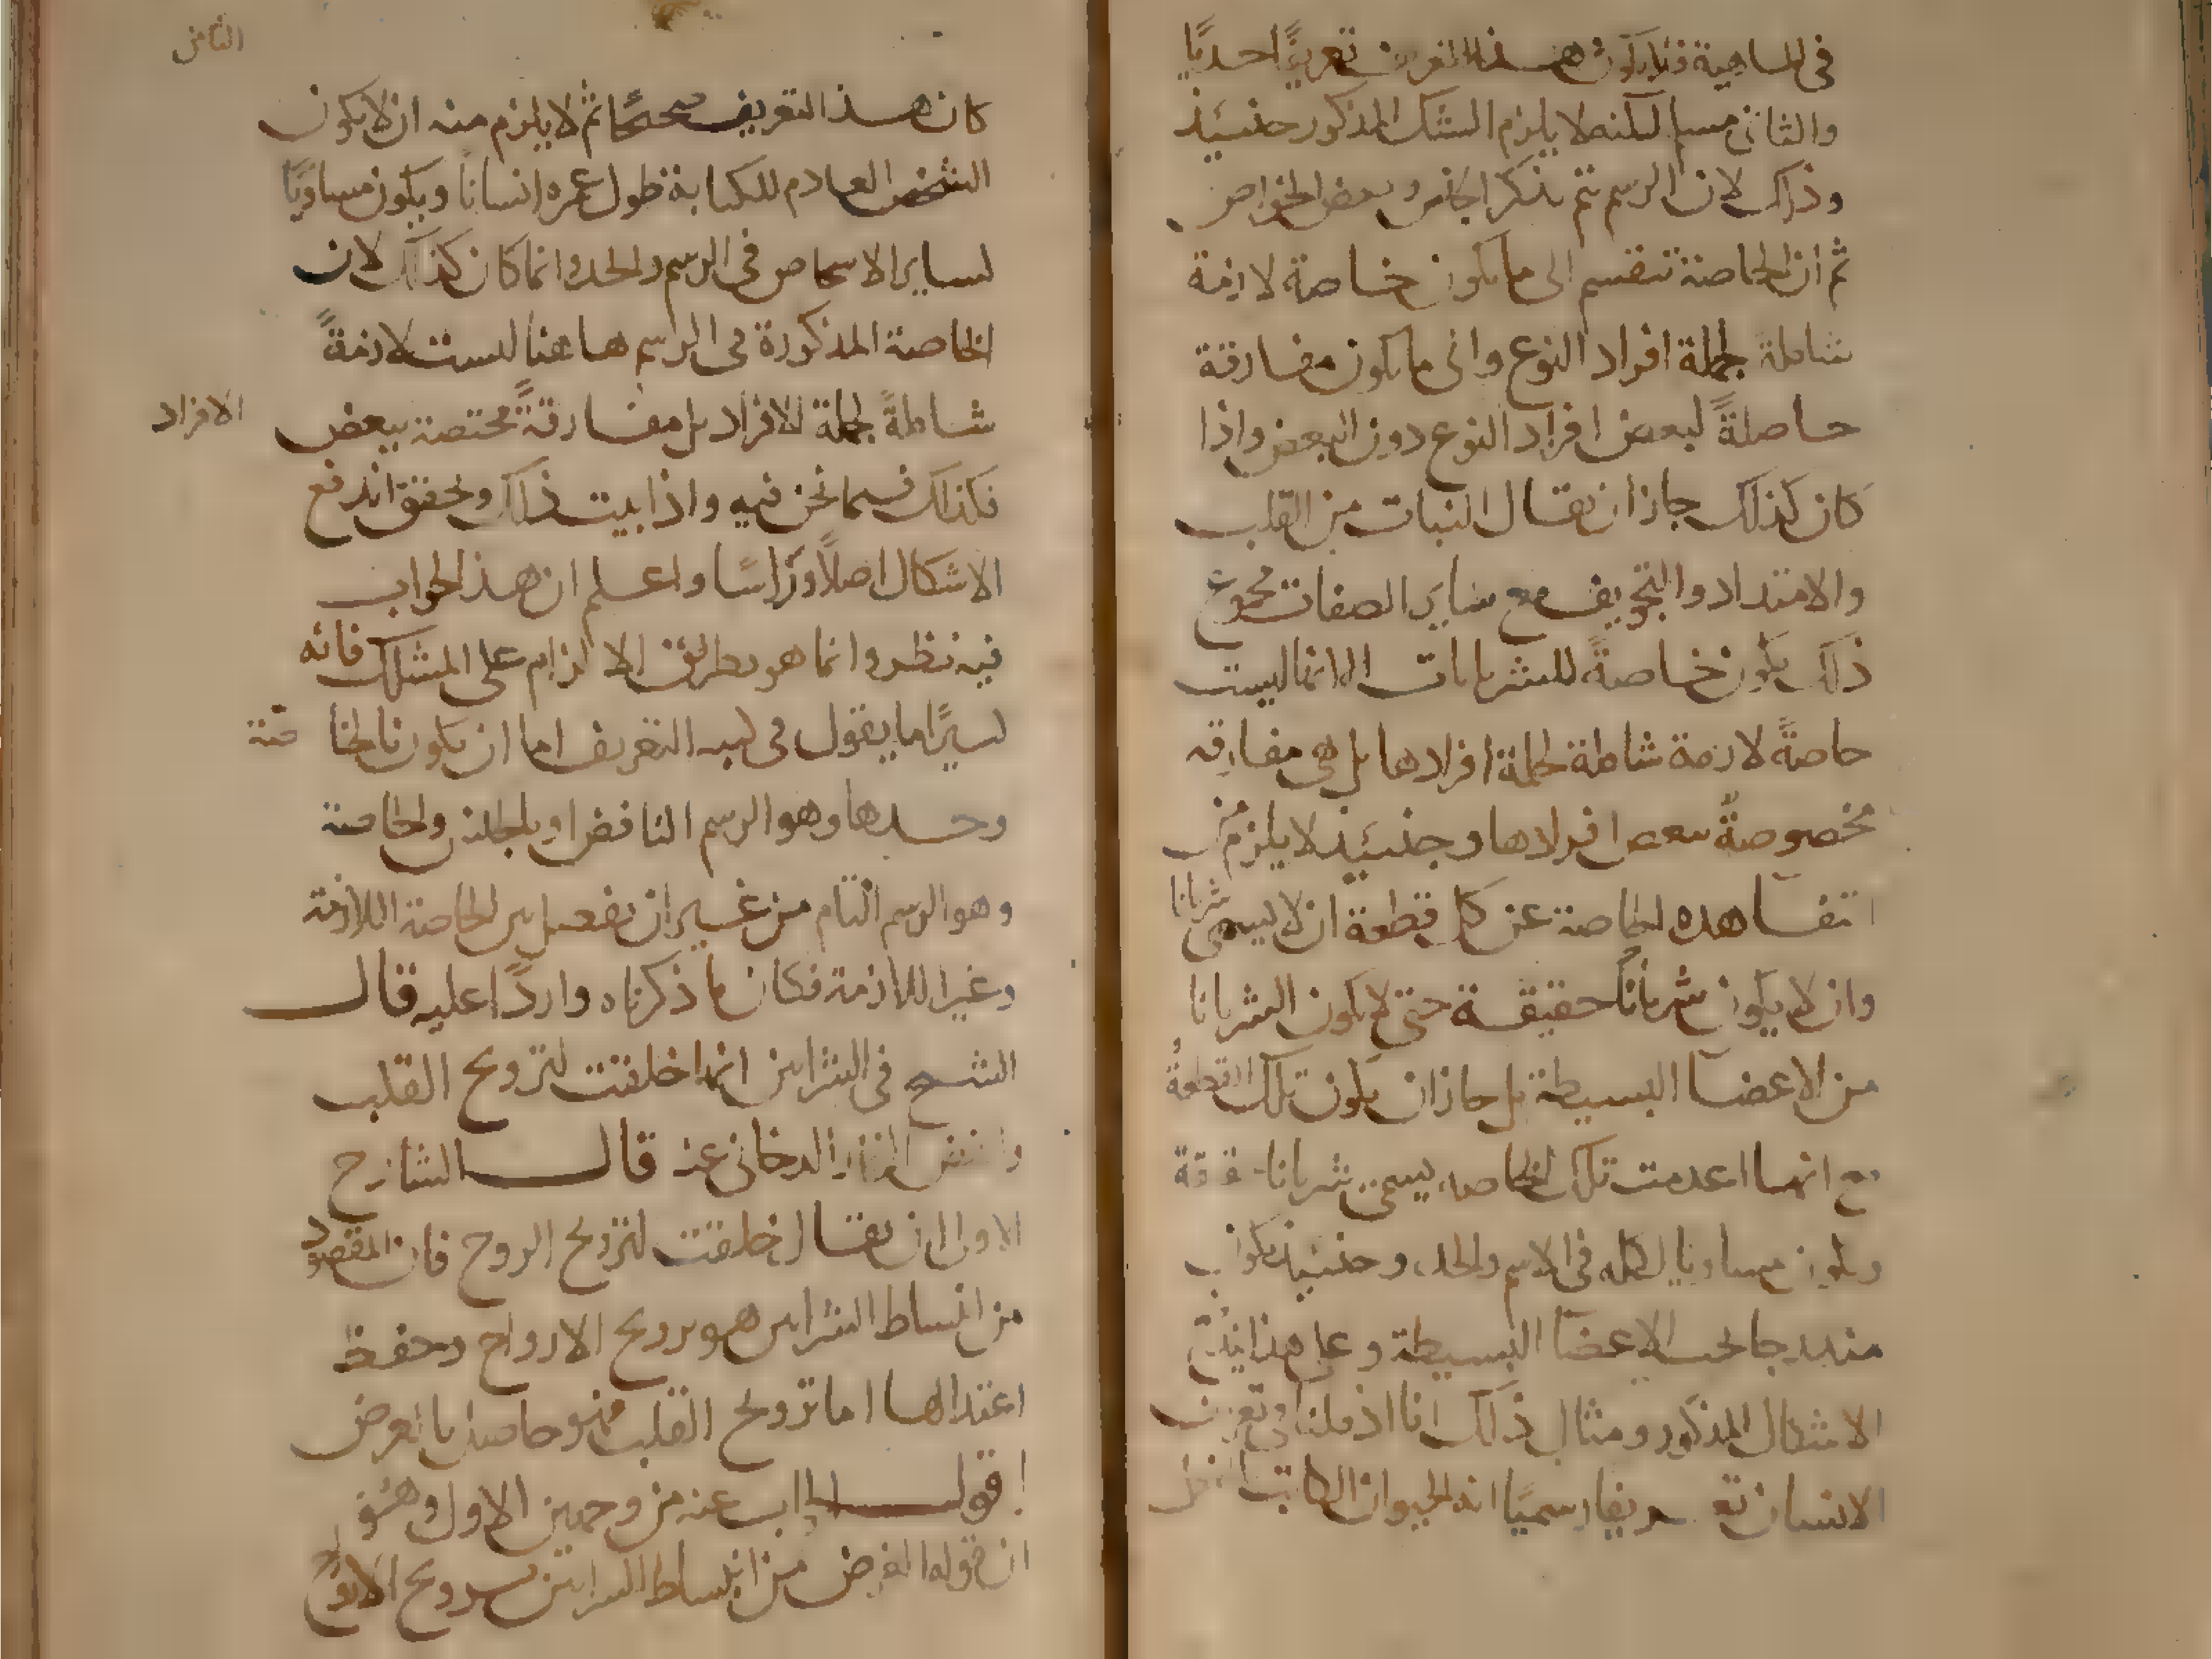 في الماهية فلا يكون هذا التعريف تعريفًا حديًا
والثاني مسلم لكنه لا يلزم الشك المذكور حينئذ
وذلك لان الرسم يتم بذكر الجنس وبعض الخواص
ثم ان الخاصة تنقسم الى ما يكون خاصة لازمة
شاملة لجملة افراد النوع والى ما يكون مفارقة
حاصلةً لبعض افراد النوع دون البعض واذا
كان كذلك جاز ان يقال النبات من القلب
والامتداد والتجويف مع ساير الصفات مجموع
ذلك يكون خاصةً للشريانات الا انها ليست
خاصةً لازمة شاملة لجملة افرادها بل هي مفارقه
مخصوصةً ببعض افرادها وحينئذ لا يلزم من
انتفا هذه الخاصة عن كل قطعة ان لا يسمى شريانا
وان لا يكون شريانًا حقيقة حتى لا يكون الشريانا
من الاعضا البسيطة بل جاز ان يكون تلك القطعة
مع انها اعدمت تلك الخاصه يسمى شريانا حقيقة
ويكون مساويا لكله في الاسم والحد وحينئذ يكون
مندرجا تحت الاعضا البسيطة وعلى هذا يندفع
الاشكال المذكور ومثال ذلك انا اذ قلنا في تعريف
الانسان تعريفا رسميًا انه الحيوان الكاتب
الثامن
كان هذا التعريف صحيحًا ثم لا يلزم منه ان لا يكون
الشخص العادم للكتابة طول عمره انسانا ويكون مساويًا
لساير الاشخاص في الرسم والحد وانما كان كذلك لان
الخاصة المذكورة في الرسم هاهنا ليست لازمةً
شاملةً لجملة الافراد بل مفارقةً مختصة ببعض الافراد
فكذلك فيما نحن فيه واذا ثبت ذلك وتحقق اندفع
الاشكال اصلًا وراسًا واعلم ان هذا الجواب
فيه نظر وانما هو بطريق الالزام على المشكك فانه
كثيرًا ما يقول في كتبه التعريف اما ان يكون بالخاصة
وحدها وهو الرسم الناقص او بالجنس والخاصة
وهو الرسم التام من غير ان يفصل بين الخاصة اللازمة
وغير اللازمة فكان ما ذكرناه واردًا عليه قال
الشيخ في الشرايين انها خلقت لترويح القلب
ونفض البخار الدخاني عنه قال الشارح
الاولى ان يقال خلقت لترويح الروح فان المقصود
من انبساط الشرايين هو ترويح الارواح وحفظ
اعتدالها اما ترويح القلب فهو حاصل بالعرض
اقول الجواب عنه من وجهين الاول وهو
ان قوله الغرض من انبساط الشرايين ترويح الارواح